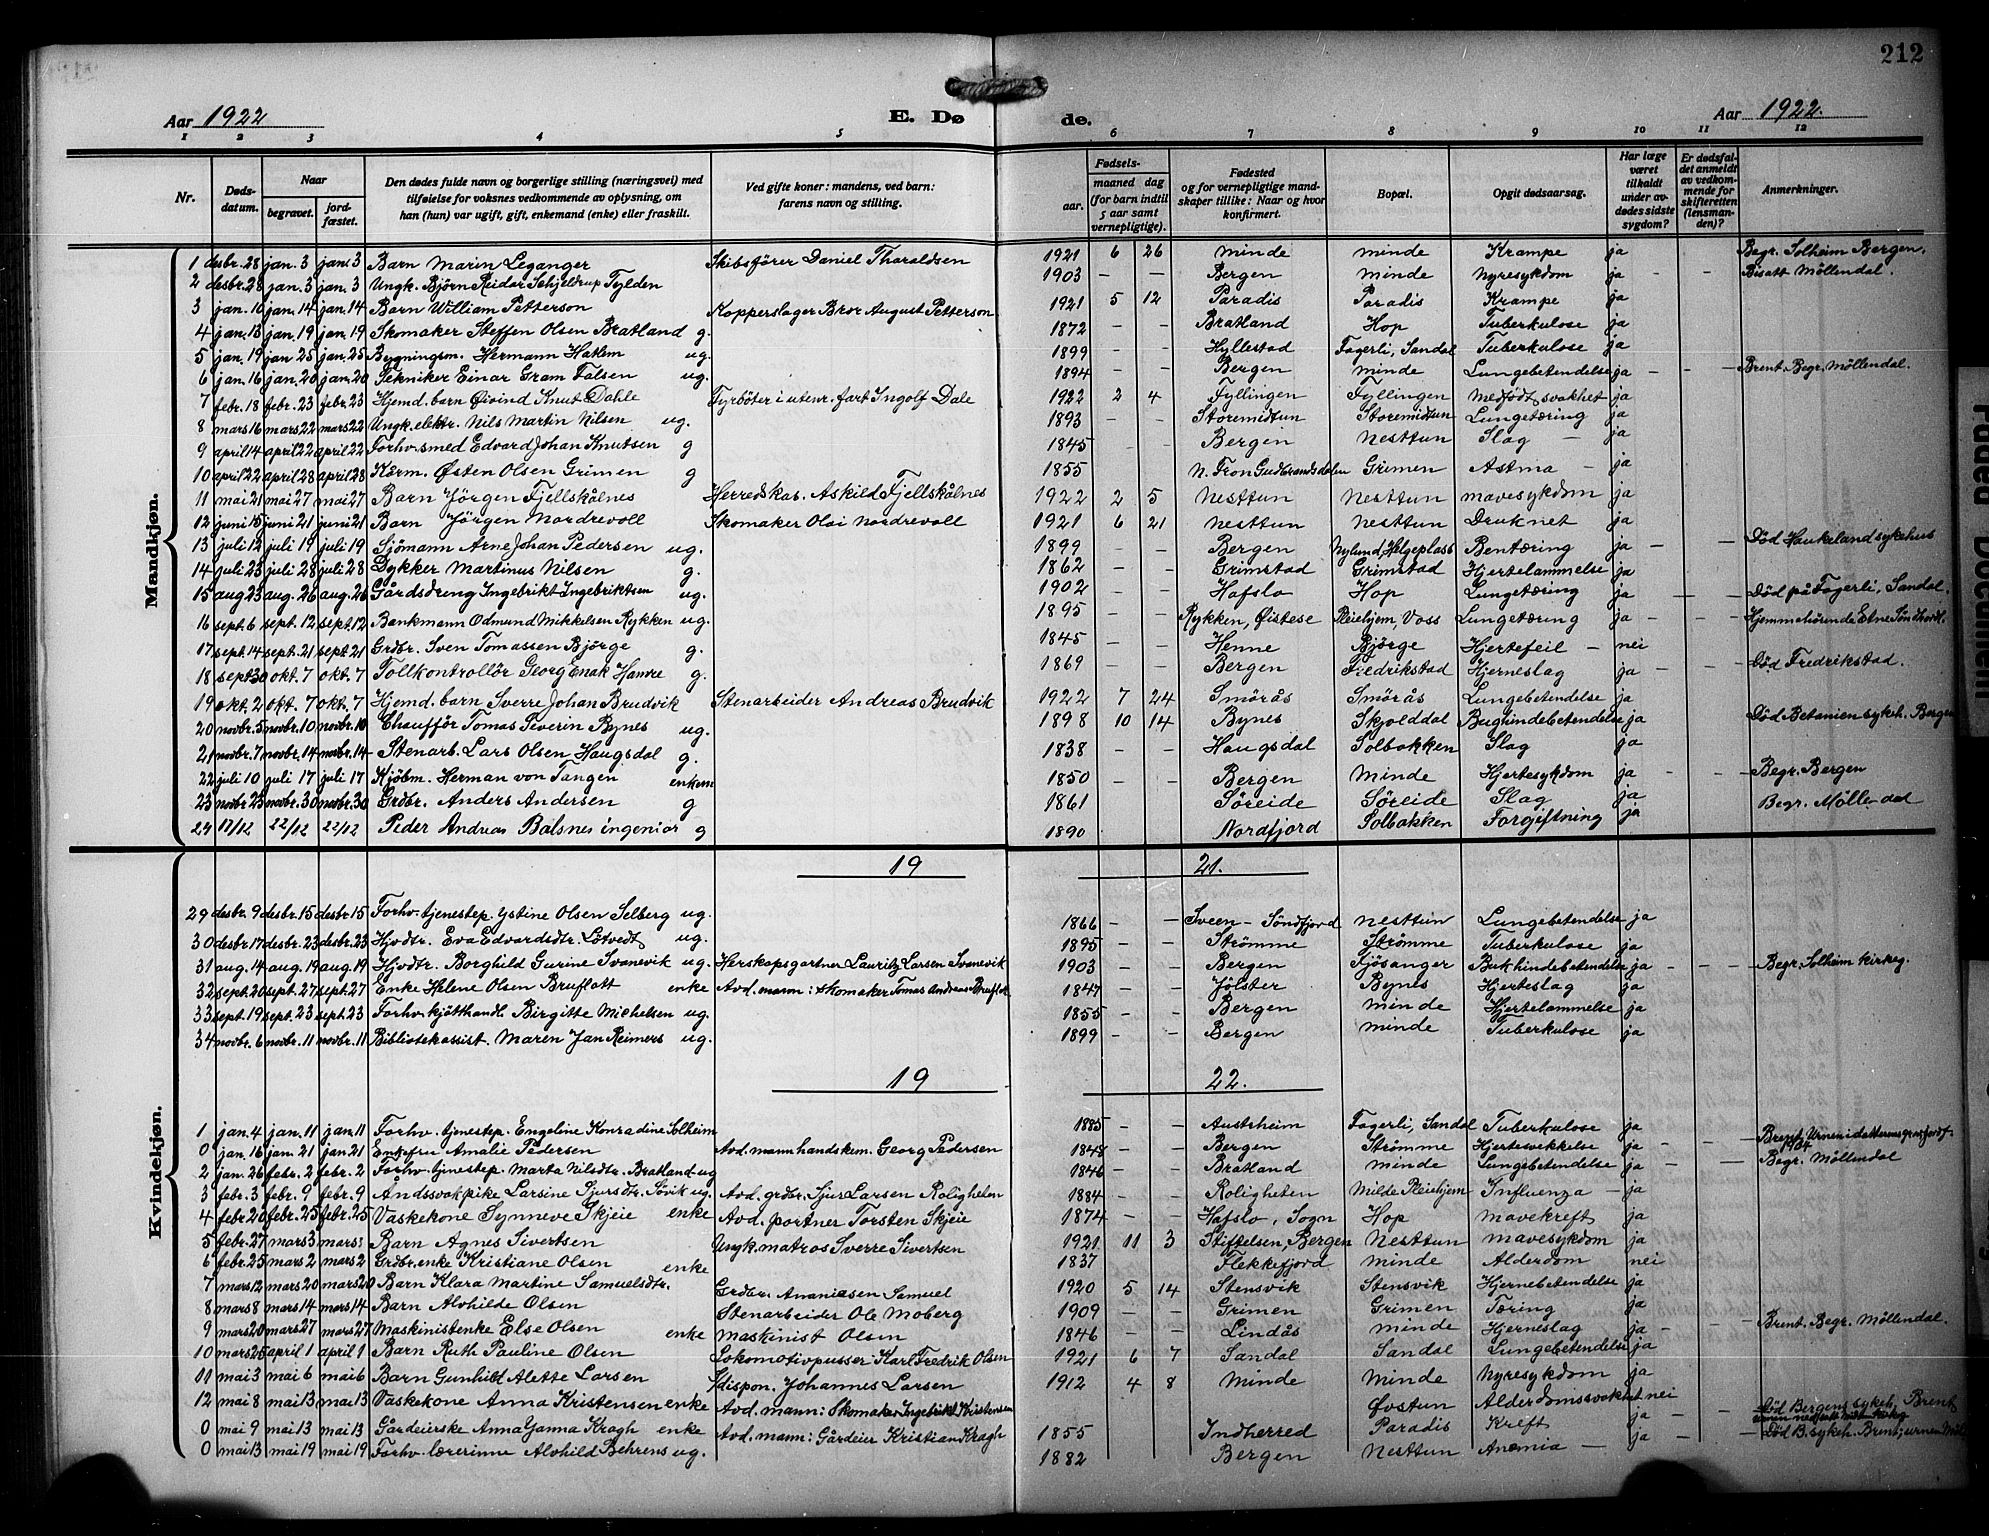 212
Aar 1922
E. Dø
de.
Aar 1922.
1 2 3 4 5 6 7 8 9 10 11 12
Nr. | Døds-datum. | Naar begravet. | jord-fæstet. | Den dødes fulde navn og borgerlige stilling (næringsvei) med tilføielse for voksnes vedkommende av oplysning, om han (hun) var ugift, gift, enkemand (enke) eller fraskilt. | Ved gifte koner: mandens, ved barn: farens navn og stilling. | Fødsels- aar. | maaned dag (for barn indtil 5 aar samt vernepligtige). | Fødested og for vernepligtige mandskaper tillike: Naar og hvor konfirmert. | Bopæl. | Opgit dødsaarsag. | Har læge været tilkaldt under avdødes sidste sygdom? | Er dødsfaldet anmeldt av vedkommende for skifteretten (lensmanden)? | Anmerkninger.
Mandkjøn.
1 desbr. 28 jan. 3 jan. 3 Barn Marin Leganger Skibsfører Daniel Tharaldsen 1921 6 26 Minde Minde Krampe ja Begr. Solheim Bergen.
2 desbr. 28 jan. 3 jan. 3 Ungk. Bjørn Reidar Schjeldrup Tylden 1903 – – Bergen Minde Nyresykdom ja – – Bisatt Möllendal.
3 jan. 10 jan. 14 jan. 14 Barn William Petterson Kopperslager Bror August Petterson 1921 5 12 Paradis Paradis Krampe ja
4 jan. 13 jan. 19 jan. 19 Skomaker Steffen Olsen Bratland g. 1872 – – Bratland Hop Tuberkulose ja
5 jan. 19 jan. 25 jan. 25 Bygningsm. Hermann Hatlem ug. 1899 – – Hyllestad Fagerli, Sandal Tuberkulose ja
6 jan. 16 jan. 20 jan. 20 Tekniker Einar Gram Falsen ug. 1894 – – Bergen Minde Lungebetendelse ja – – Brent. Begr. Möllendal.
7 febr. 18 febr. 23 febr. 23 Hjemd. barn Øivind Knut Dahle Fyrböter i utenr. fart Ingolf Dale 1922 2 4 Fyllingen Fyllingen Medfödt svakhet ja
8 mars 16 mars 22 mars 22 Ungk. elektr. Nils Martin Nilsen ug. 1893 – – Storemidtun Storemidtun Lungetæring ja
9 april 14 april 22 april 22 Forhv. smed Edvard Johan Knutsen g 1845 – – Bergen Nesttun Slag – ja
10 april 22 april 28 april 28 Kærm. Østen Olsen Grimen g 1855 N. Fron Gudbrandsdalen Grimen Astma – ja
11 mai 21 mai 27 mai 27 Barn Jörgen Fjellskålnes Herredskas. Askild Fjellskålnes 1922 2 5 Nesttun Nesttun Mavesykdom ja
12 juni 15 juni 21 juni 21 Barn Jörgen Nordrevoll Skomaker Olai Nordrevoll 1921 6 21 Nesttun Nesttun Druknet ja
13 juli 12 juli 19 juli 19 Sjömann Arne Johan Pedersen ug. 1899 – – Bergen Nylund, Helgeplass Bentæring ja – – Död Haukeland sykehus
14 juli 23 juli 28 juli 28 Dykker Martinus Nilsen g. 1862 – – Grimstad Grimstad Hjertelammelse ja
15 aug. 23 aug. 26 aug. 26 Gårdsdreng Ingebrikt Ingebriktsen ug. 1902 – – Hafslo Hop Lungetæring ja – – Död på Fagerli, Sandal.
16 sept. 6 sept. 12 sept. 12 Bankmann Odmund Mikkelsen Rykken ug. 1895 – – Rykken, Øistese Pleiehjem, Voss Lungetæring ja – – Hjemmehörende Etne Sönhordl.
17 sept. 14 sept. 21 sept. 21 Grdbr. Sven Tomassen Björge g. 1845 – – Henne Bjørge Hjertefeil – nei
18 sept. 30 okt. 7 okt. 7 Tollkontrollör Georg Enak Hamre g. 1869 – – Bergen Fredrikstad Hjerneslag ja – – Död Fredrikstad.
19 okt. 2 okt. 7 okt. 7 Hjemd. barn Sverre Johan Brudvik Stenarbeider Andreas Brudvik 1922 7 24 Smörås Smörås Lungebetendelse ja
20 novbr. 5 novbr. 10 novbr. 10 Chauffør Tomas Severin Bynes ug. 1898 10 14 Bynes Skjolddal Bughindebetendelse ja Död Betanien sykeh. Bergen
21 novbr. 7 novbr. 14 novbr. 14 Stenarb. Lars Olsen Haugsdal g. 1838 – – Haugsdal Solbakken Slag ja
22 juli 10 juli 17 juli 17 Kjöbm. Herman von Tangen enkem 1850 – – Bergen Minde Hjertesykdom ja – – Begr. Bergen
23 novbr. 23 novbr. 30 novbr. 30 Grdbr. Anders Andersen g 1861 Søreide Søreide Slag ja Begr. Möllendal
24 17/12 22/12 22/12 Peder Andreas Balsnes ingeniør g 1890 Nordfjord Solbakken Forgiftning ja
Kvindekjøn.
19 21.
29 desbr. 9 desbr. 15 desbr. 15 Forhv. tjenestep. Ystine Olsen Selberg ug. 1866 – – Sveen – Söndfjord Nesttun Lungebetendelse ja
30 desbr. 17 desbr. 23 desbr. 23 Hjvdtr. Eva Edvardsdtr. Løtvedt ug. 1895 – – Strømme Strømme Tuberkulose ja
31 aug. 14 aug. 19 aug. 19 Hjvdtr. Borghild Gurine Svanevik ug. Herskapsgartner Lauritz Larsen Svanevik 1903 – – Bergen Fjösanger Bukhindebetendelse ja – – – Begr. Solheim kirkeg.
32 sept. 20 sept. 27 sept. 27 Enke Helene Olsen Bruflott enke Avd. mann: skomaker Tomas Andreas Bruflot 1847 – – Jölster Bynes Hjerteslag ja
33 sept. 19 sept. 23 sept. 23 Forhv. kjötthandl. Birgitte Michelsen ug. 1855 – – Bergen Minde Hjertelammelse ja
34 novbr. 6 novbr. 11 novbr. 11 Bibliotekassist. Maren Jan Reimers ug. 1899 – – Bergen Minde Tuberkulose ja
19 22.
1 jan. 4 jan. 11 jan 11 Forhv. tjenestep. Engeline Konradine Solheim 1885 – – Austrheim Fagerli, Sandal Tuberkulose ja
0 jan. 16 jan. 21 jan. 21 Enkefru Amalie Pedersen Avd. mann handskem. Georg Pedersen 1848 – – Bergen Strömme Hjertesvekkelse ja – – Brent. Urnen i datterens grav
2 jan. 26 febr. 2 febr. 2 Forhv. tjenestep. Marta Nilsdtr. Bratland ug 1846 – – Bratland Minde Lungebetendelse ja – – Begr. Möllendal
3 febr. 3 febr. 9 febr. 9 Åndssvakpike Larsine Sjursdtr. Søvik ug. Avd. grdbr. Sjur Larsen Roligheten 1884 – – Roligheten Milde Pleiehjem Influenza – ja
4 febr. 20 febr. 25 febr. 25 Vaskekone Synneve Skjeie enke Avd. portner Torsten Skjeie 1874 – – Hafslo, Sogn Hop Mavekreft ja
5 febr. 27 mars 3 mars Barn Agnes Sivertsen Ungk. matros Sverre Sivertsen 1921 11 3 Stiftelsen, Bergen Nesttun Mavesykdom ja
6 febr. 25 mars 2 mars 2 Grdbr. enke Kristiane Olsen enke 1837 Flekkefjord Minde Alderdom nei
7 mars 12 mars 20 mars 20 Barn Klara Martine Samuelsdtr. Grdbr. Ananiasen Samuel 1920 5 14 Stensvik Stensvik Hjernebetendelse ja
8 mars 8 mars 14 mars 14 Barn Alvhilde Olsen Stenarbeider Ole Moberg 1909 – – Grimen Grimen Tæring ja
9 mars 20 mars 27 mars 27 Maskinistenke Else Olsen enke Maskinist Olsen 1846 – – Lindås Minde Hjerneslag ja – – Brent. Begr. Möllendal.
10 mars 25 april 1 april 1 Barn Ruth Pauline Olsen Lokomotivpusser Karl Fredrik Olsen 1921 6 7 Sandal Sandal Lungebetendelse ja
11 mai 3 mai 6 mai 6 Barn Gunhild Alette Larsen Sdispon. Johannes Larsen 1912 4 8 Minde Minde Nyresykdom ja
12 mai 8 mai 13 mai 13 Vaskekone Anna Kristensen enke Avd. mann: Skomaker Ingebrikt Kristensen Øvstun Alderdomssvakhet nei
0 mai 9 mai 13 mai 13 Gårdeierske Anna Janna Kragh enke Avd. mann: Gårdeier Kristian Kragh 1855 Indherred Paradis Kreft ja – – Död Bergens sykeh. Brent
0 mai 13 mai 19 mai 19 Forhv. lærerinne Alvhild Behrens ug. 1882 Bergen Nesttun Anæmia – ja – – Död B. sykeh. Brent; urnen
Faded Document